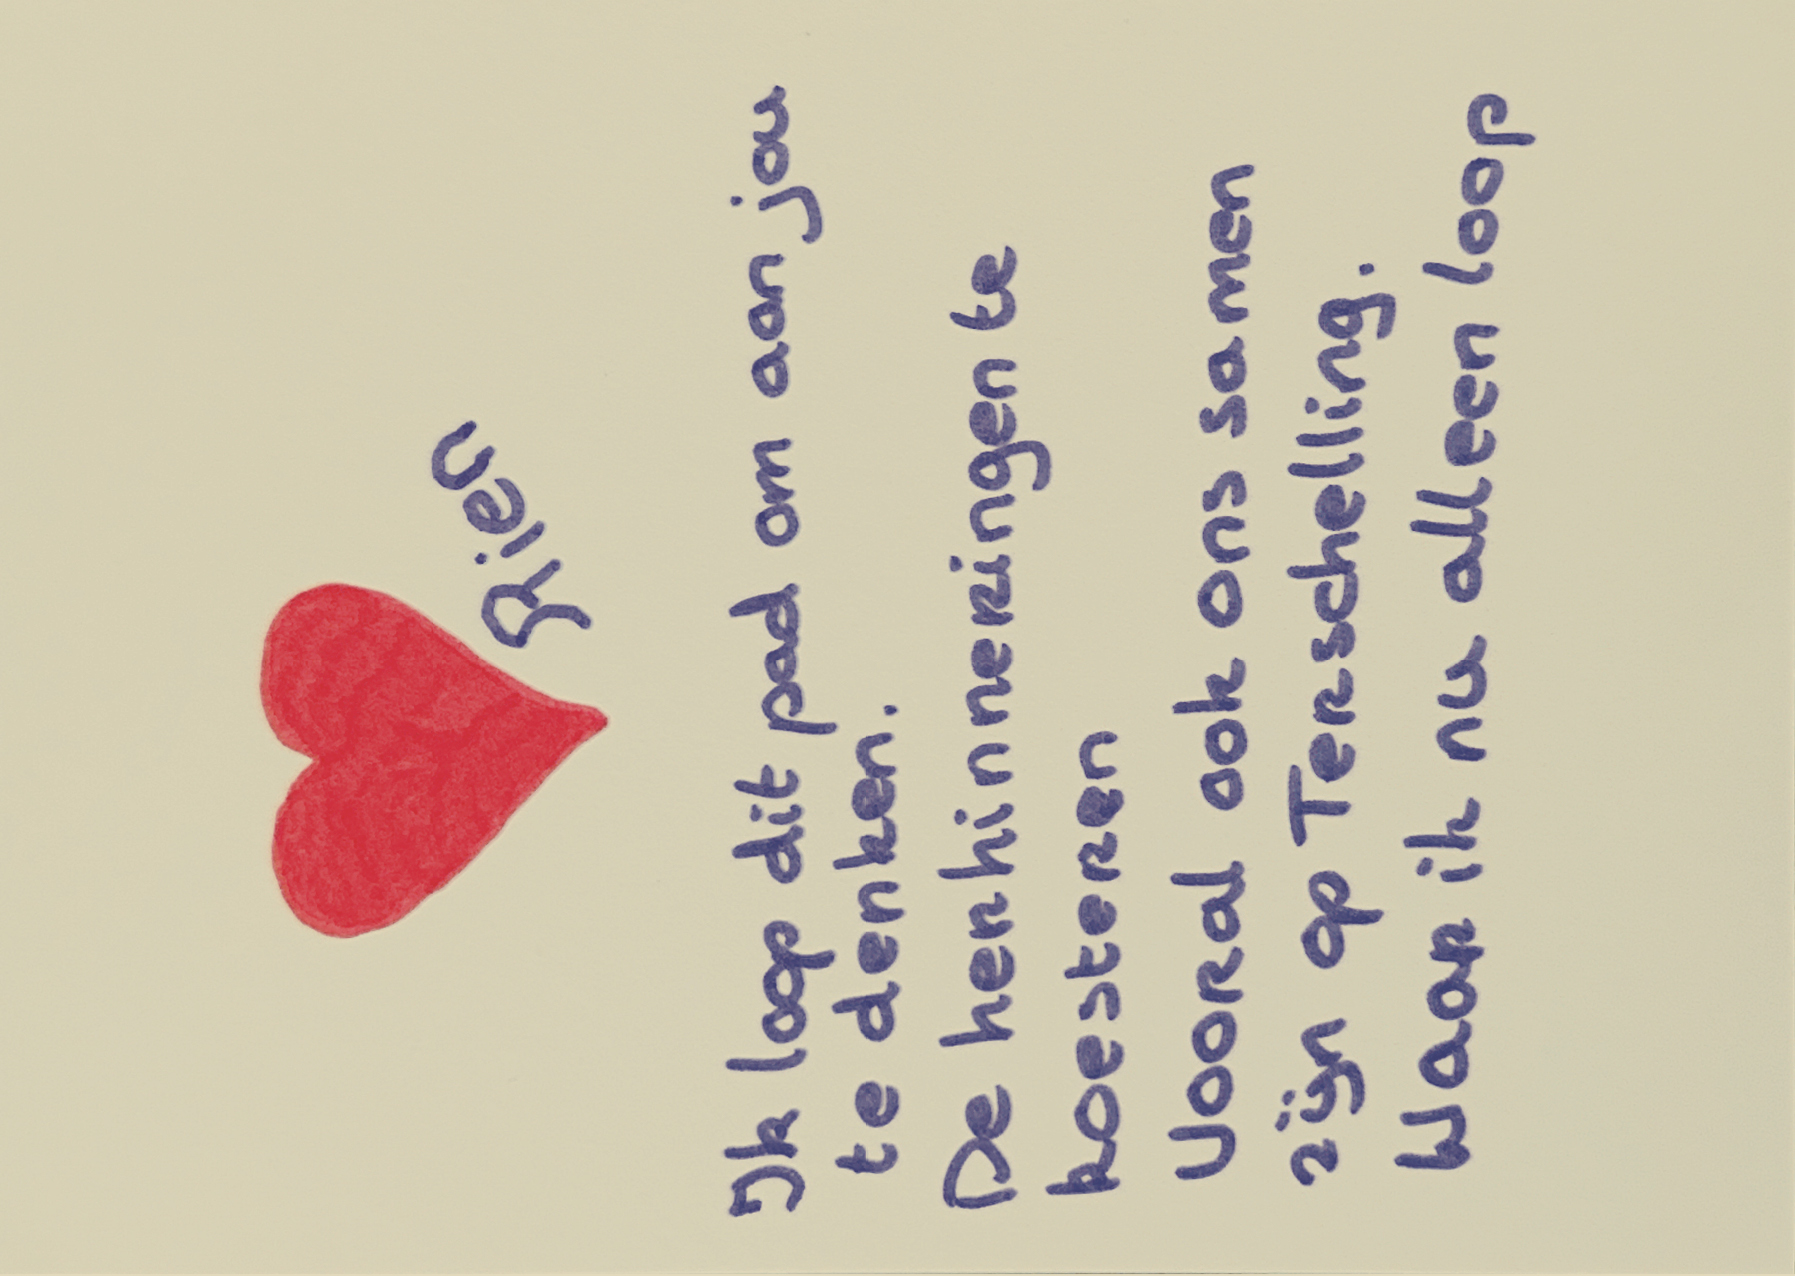 Rien
Ik loop dit pad om aan jou
te denken.
De herhinneringen te
koesteren
Vooral ook ons samen
zijn op Terschelling.
Waar ik nu alleen loop